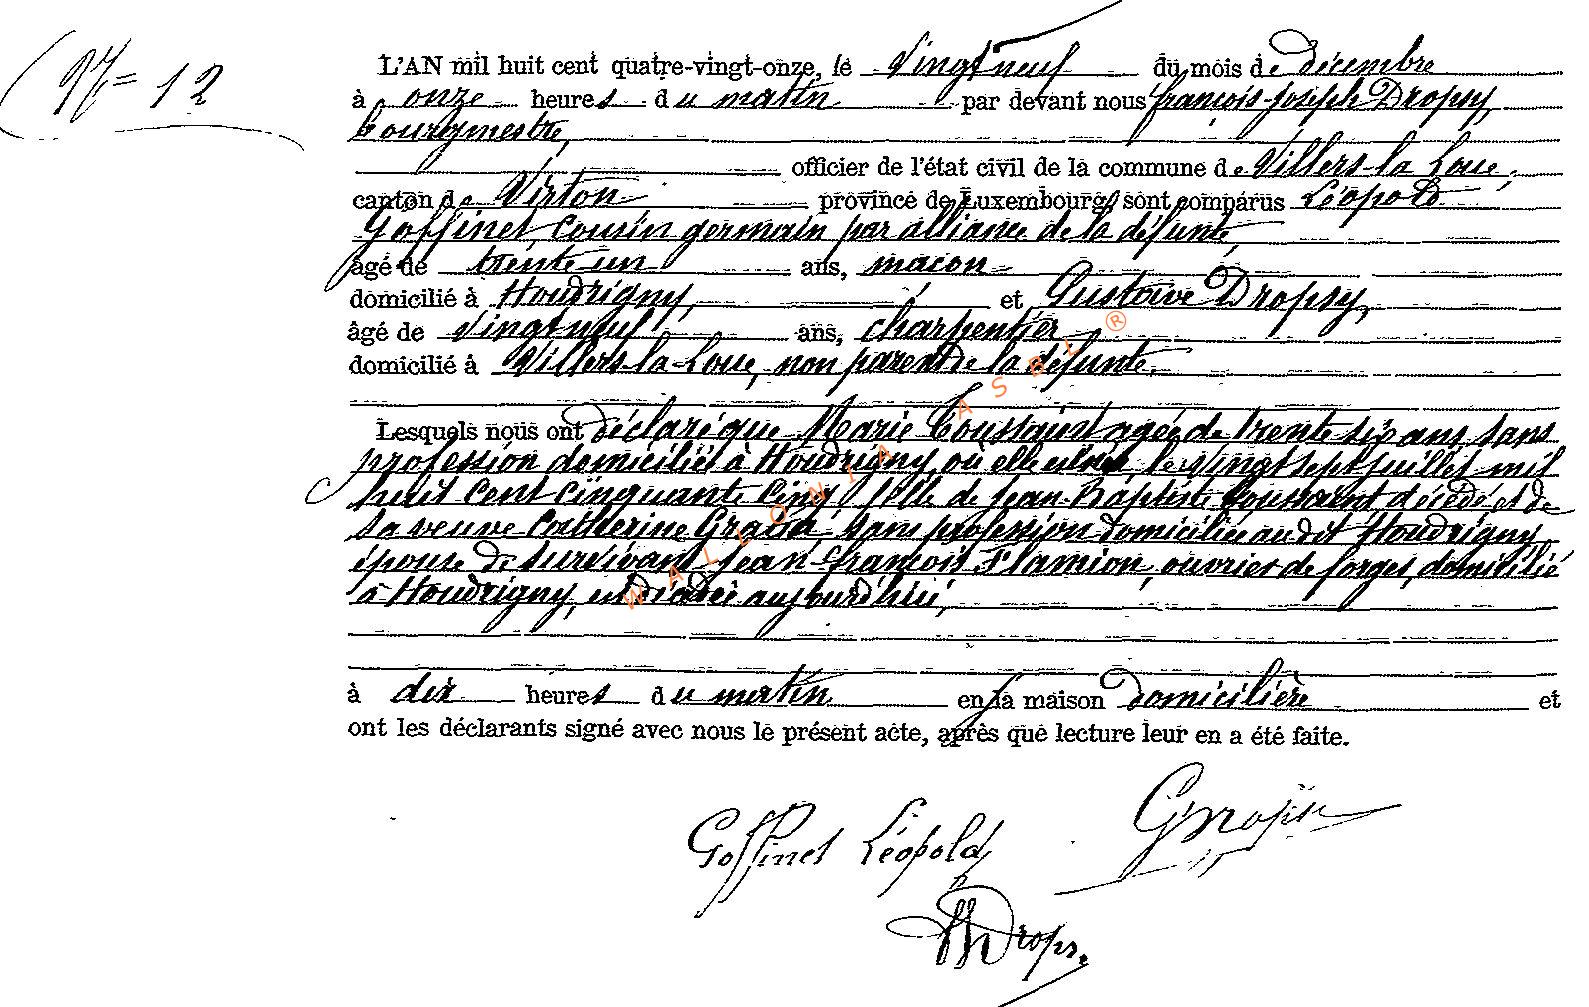 N° 12
L'AN mil huit cent quatre-vingt-onze, le vingt neuf du mois de décembre
à onze heures du matin par devant nous françois-joseph Dropsy,
bourgmestre,
officier de l'état civil de la commune de Villers-la Loue,
canton de Virton province de Luxembourg, sont comparus Léopold
Goffinet, cousin germain par alliance de la défunte,
âgé de trente un ans, maçon
domicilié à Houdrigny, et Gustave Dropsy,
âgé de vingt neuf ans, charpentier
domicilié à Villers-la-Loue, non parent de la défunte.
Lesquels nous ont déclaré que Marie Toussaint agée de trente six ans sans
profession domiciliée à Houdrigny, où elle est née le vingt sept juillet mil
huit cent cinquante cinq, fille de Jean-Baptiste Toussaint décédé et de
sa veuve Catherine sans profession domiciliée au dit Houdrigny
épouse de survivant Jean-françois Flamion, ouvrier de forges, domicilié
à Houdrigny, est décédée aujourd'hui,
à dix heures du matin en sa maison domicilière et
ont les déclarants signé avec nous le présent acte, après que lecture leur en a été faite.
Goffinet Léopold
GDropsy
Dropsy
WALLONIA ASBL ®